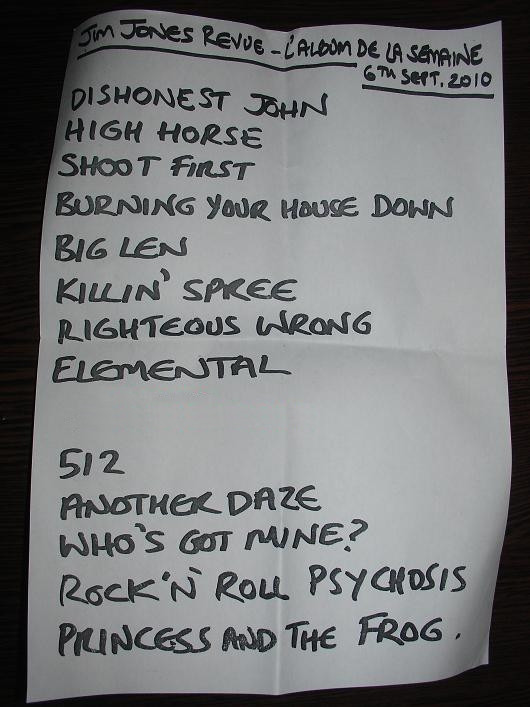 JIM JONES REVUE - L'ALBUM DE LA SEMAINE
6TH SEPT. 2010
DISHONEST JOHN
HIGH HORSE
SHOOT FIRST
BURNING YOUR HOUSE DOWN
BIG LEN
KILLIN' SPREE
RIGHTEOUS WRONG
ELEMENTAL
512
ANOTHER DAZE
WHO'S GOT MINE?
ROCK 'N' ROLL PSYCHOSIS
PRINCESS AND THE FROG.